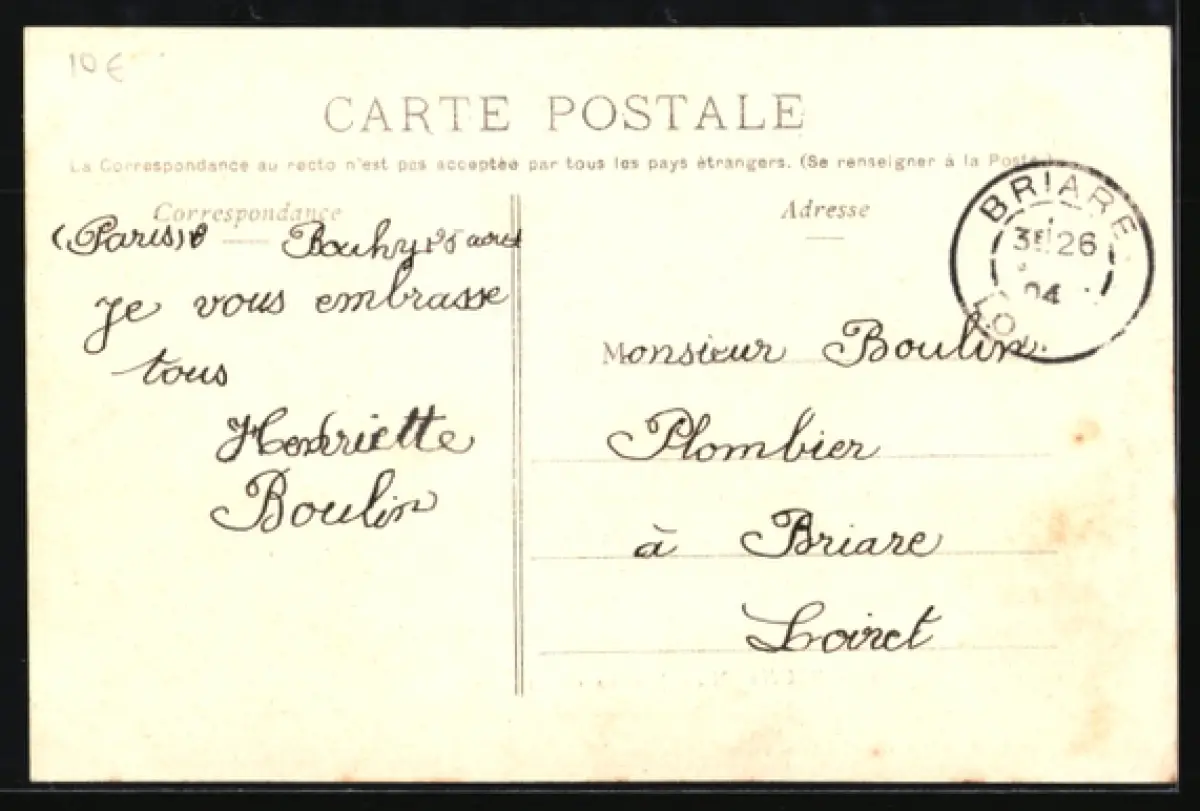 10 €
CARTE POSTALE
La Correspondance au recto n'est pas acceptée par tous les pays étrangers. (Se renseigner à la Poste.)
Correspondance
(Paris) Bouhy
je vous embrasse
tous
Henriette
Boulin
Adresse
BRIARE
3E 26
04
LO
Monsieur Boulin.
Plombier
à Briare
Loiret